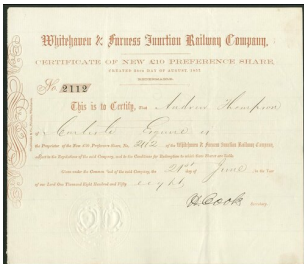 Whitehaven & Furness Junction Railway Company,
CERTIFICATE OF NEW £10 PREFERENCE SHARE,
CREATED DAY OF AUGUST, 1857
No. 2112
This is to Certify, that Andrew Thompson
of Carlisle Esquire is
the Proprietor of the New £10 Preference Share, No. 2112 of the Whitehaven & Furness Junction Railway Company,
subject to the Regulations of the said Company, and to the Conditions for
Given under the Common Seal of the said Company, the 21st day of June in the Year
of our Lord One Thousand Eight Hundred and Fifty eight.
H. Cook Secretary